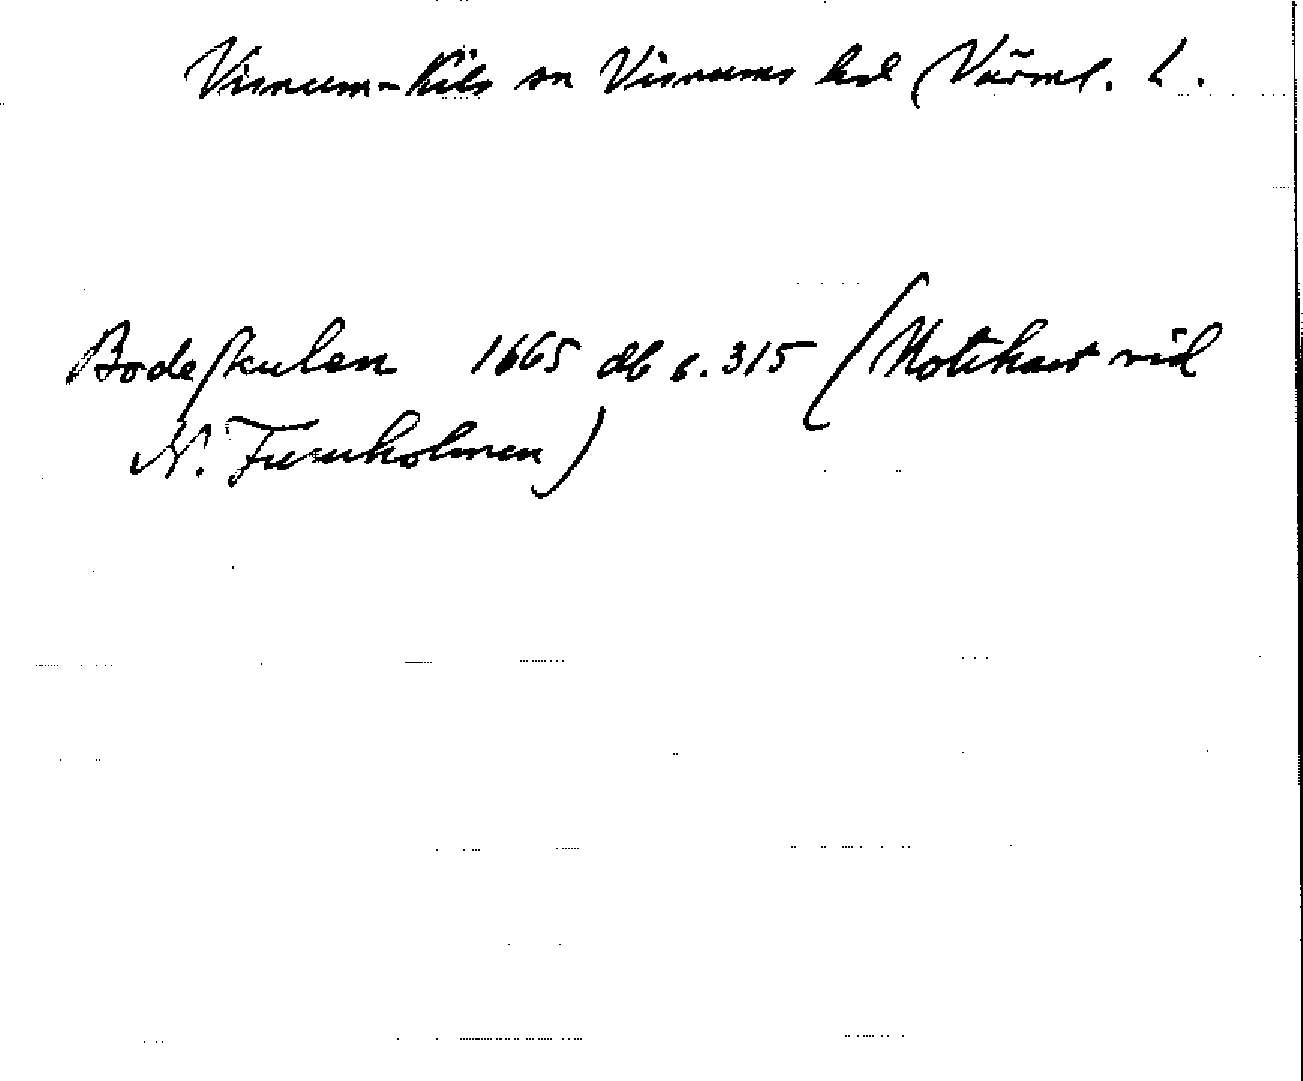 Visnum-Kils sn Visnums hd (Värml. L.
Bodeskulen 1665 db s. 315 (Notkast vid
N. Furuholmen)